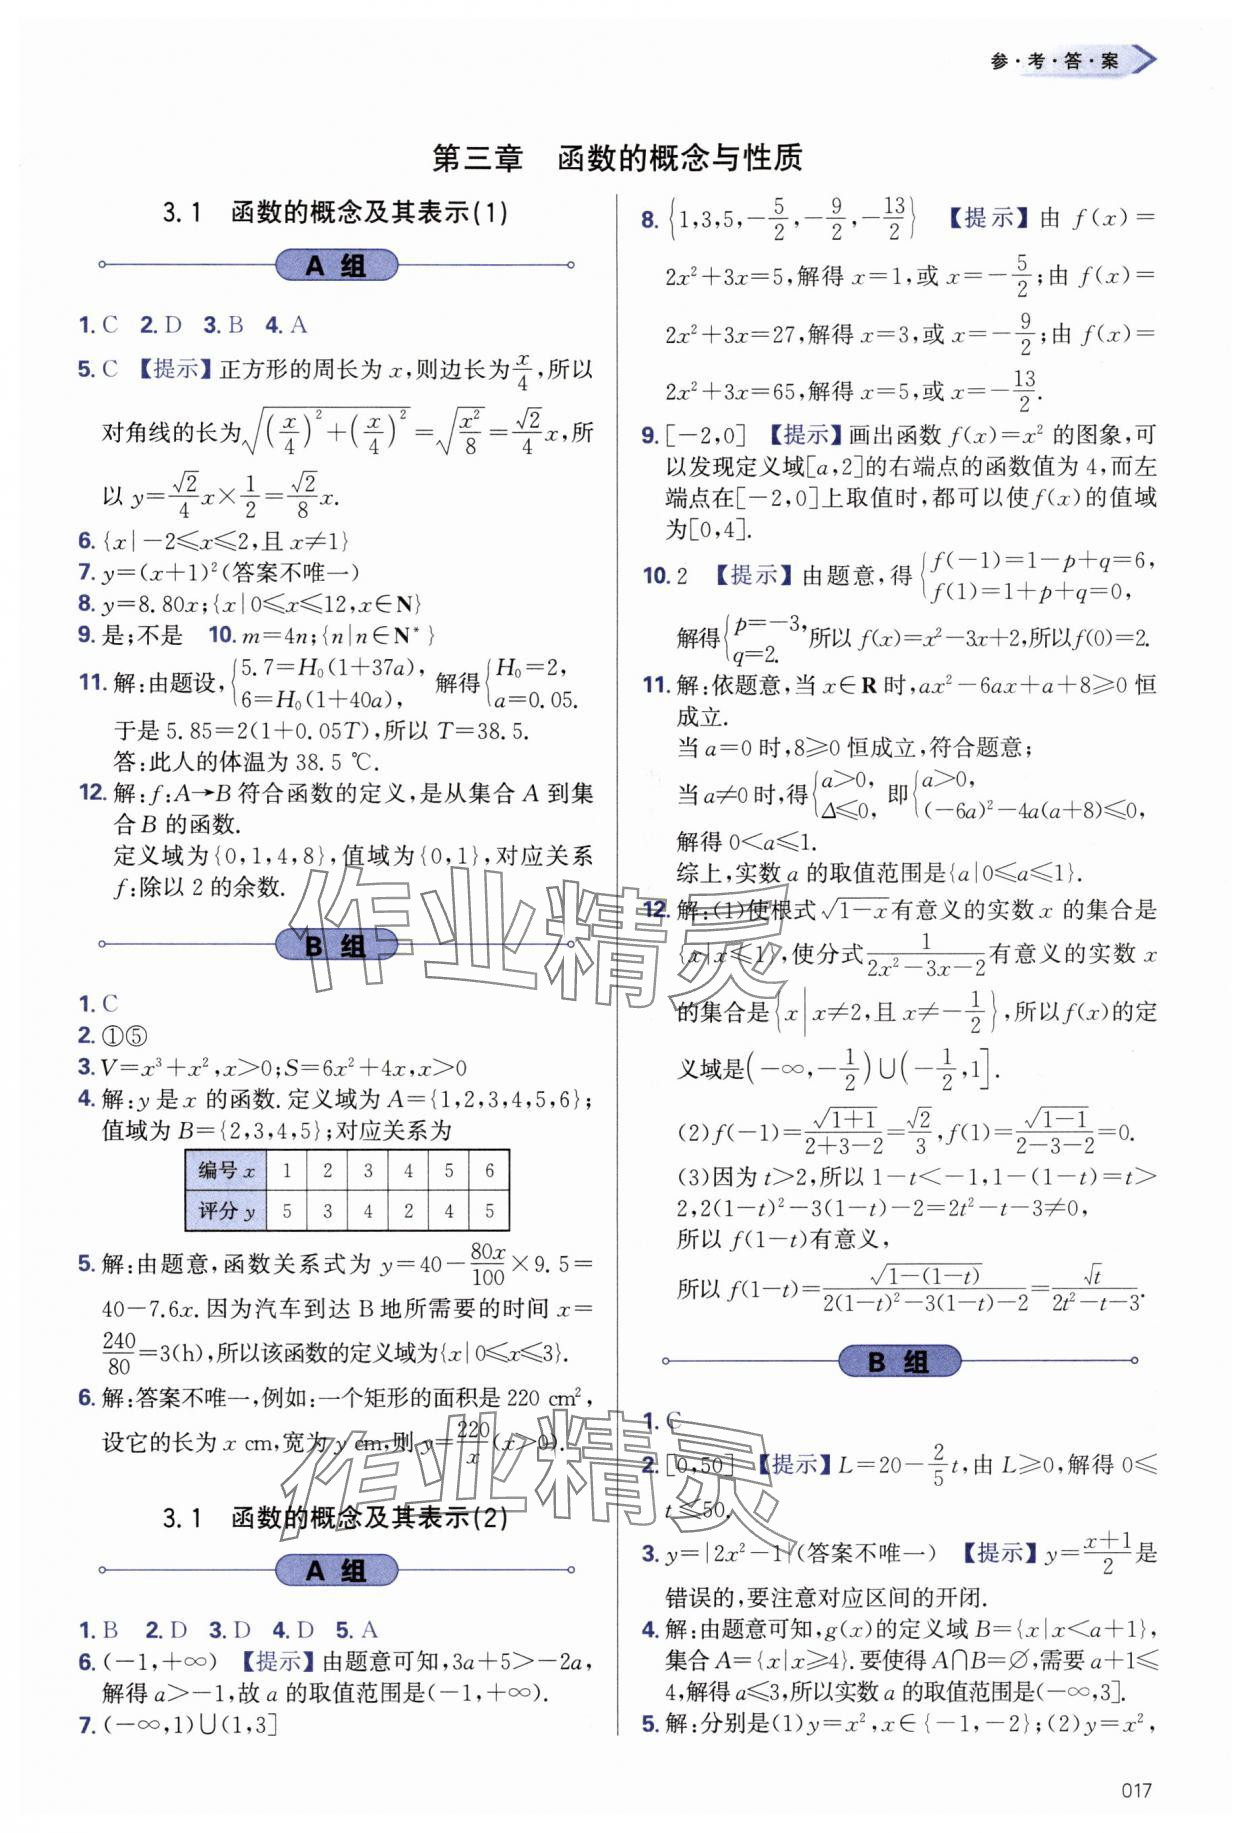 参·考·答·案
第三章　函数的概念与性质
3.1　函数的概念及其表示(1)
A 组
1. C　2. D　3. B　4. A
5. C 【提示】正方形的周长为 x,则边长为x/4,所以
对角线的长为√((x/4)²+(x/4)²)=√(x²/8)=(√2/4)x,所
以 y=(√2/4)x×1/2=(√2/8)x.
6. {x|-2≤x≤2,且 x≠1}
7. y=(x+1)²(答案不唯一)
8. y=8.80x;{x|0≤x≤12,x∈N}
9. 是;不是　10. m=4n;{n|n∈N*}
11. 解:由题设,{5.7=H₀(1+37a), 6=H₀(1+40a), 解得{H₀=2, a=0.05.
于是 5.85=2(1+0.05T),所以 T=38.5.
答:此人的体温为 38.5 ℃.
12. 解:f:A→B 符合函数的定义,是从集合 A 到集
合 B 的函数.
定义域为{0,1,4,8},值域为{0,1},对应关系
f:除以 2 的余数.
B 组
1. C
2. ①⑤
3. V=x³+x²,x>0;S=6x²+4x,x>0
4. 解:y 是 x 的函数.定义域为 A={1,2,3,4,5,6};
值域为 B={2,3,4,5};对应关系为
编号 x 1 2 3 4 5 6
评分 y 5 3 4 2 4 5
5. 解:由题意,函数关系式为 y=40-80x/100×9.5=
40-7.6x.因为汽车到达 B 地所需要的时间 x=
240/80=3(h),所以该函数的定义域为{x|0≤x≤3}.
6. 解:答案不唯一,例如:一个矩形的面积是 220 cm²,
设它的长为 x cm,宽为 y cm,则 y=220/x(x>0).
3.1　函数的概念及其表示(2)
A 组
1. B　2. D　3. D　4. D　5. A
6. (-1,+∞) 【提示】由题意可知,3a+5>-2a,
解得 a>-1,故 a 的取值范围是(-1,+∞).
7. (-∞,1)∪(1,3]
8. {1,3,5,-5/2,-9/2,-13/2} 【提示】由 f(x)=
2x²+3x=5,解得 x=1,或 x=-5/2;由 f(x)=
2x²+3x=27,解得 x=3,或 x=-9/2;由 f(x)=
2x²+3x=65,解得 x=5,或 x=-13/2.
9. [-2,0] 【提示】画出函数 f(x)=x² 的图象,可
以发现定义域[a,2]的右端点的函数值为 4,而左
端点在[-2,0]上取值时,都可以使f(x)的值域
为[0,4].
10. 2 【提示】由题意,得{f(-1)=1-p+q=6, f(1)=1+p+q=0,
解得{p=-3, q=2. 所以 f(x)=x²-3x+2,所以f(0)=2.
11. 解:依题意,当 x∈R 时,ax²-6ax+a+8≥0 恒
成立.
当 a=0 时,8≥0 恒成立,符合题意;
当 a≠0 时,得{a>0, Δ≤0, 即{a>0, (-6a)²-4a(a+8)≤0,
解得 0<a≤1.
综上,实数 a 的取值范围是{a|0≤a≤1}.
12. 解:(1)使根式√(1-x)有意义的实数 x 的集合是
{x|x≤1},使分式1/(2x²-3x-2)有意义的实数 x
的集合是{x|x≠2,且 x≠-1/2},所以f(x)的定
义域是(-∞,-1/2)∪(-1/2,1].
(2)f(-1)=√(1+1)/(2+3-2)=√2/3,f(1)=√(1-1)/(2-3-2)=0.
(3)因为 t>2,所以 1-t<-1,1-(1-t)=t>
2,2(1-t)²-3(1-t)-2=2t²-t-3≠0,
所以 f(1-t)有意义,
所以 f(1-t)=√(1-(1-t))/(2(1-t)²-3(1-t)-2)=√t/(2t²-t-3).
B 组
1. C
2. [0,50] 【提示】L=20-(2/5)t,由 L≥0,解得 0≤
t≤50.
3. y=|2x²-1|(答案不唯一) 【提示】y=(x+1)/2是
错误的,要注意对应区间的开闭.
4. 解:由题意可知,g(x)的定义域 B={x|x<a+1},
集合 A={x|x≥4}.要使得 A∩B=∅,需要 a+1≤
4,解得 a≤3,所以实数 a 的取值范围是(-∞,3].
5. 解:分别是(1)y=x²,x∈{-1,-2};(2)y=x²,
017
作业精灵
作业精灵